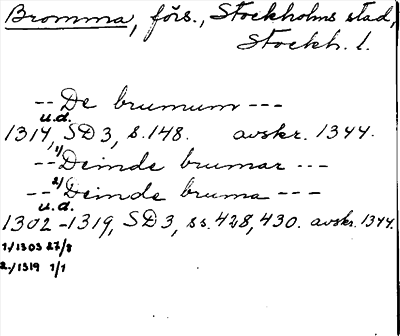 Bromma, förs., Stockholms stad,
Stockh. l.
-- De brumum ---
u.d.
1314, SD 3, s. 148. avskr. 1344.
-- 1) Deinde brumar ---
-- 2) Deinde bruma ---
u.d.
1302-1319, SD 3, ss. 428, 430. avskr. 1344.
1./1303 27/8
2./1319 1/1